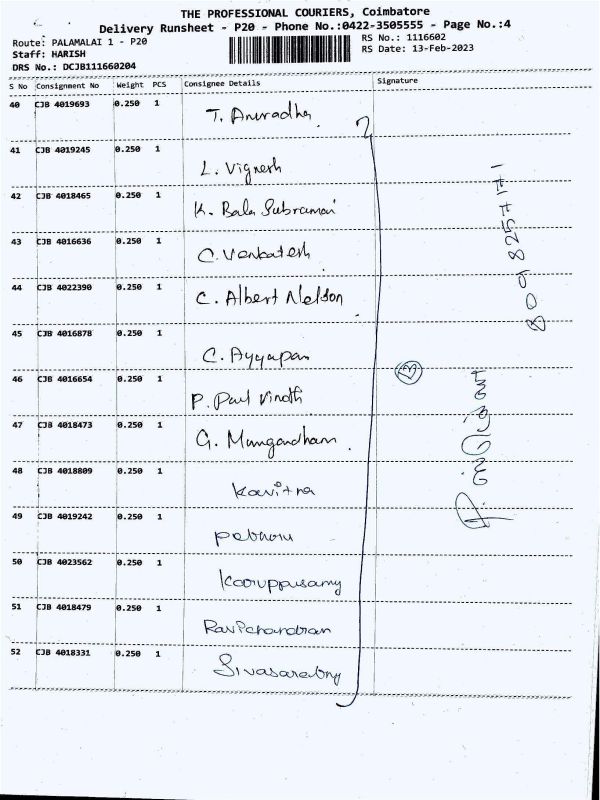 THE PROFESSIONAL COURIERS, Coimbatore
Delivery Runsheet - P20 - Phone No.:0422-3505555 - Page No.:4
Route: PALAMALAI 1 - P20
RS No.: 1116602
Staff: HARISH
RS Date: 13-Feb-2023
DRS No.: DCJB111660204
S No Consignment No Weight PCS Consignee Details Signature
40 CJB 4019693 0.250 1 T. Anuradha
41 CJB 4019245 0.250 1 L. Vignesh
42 CJB 4018465 0.250 1 K. Bala Subramani
43 CJB 4016636 0.250 1 C. Venkatesh
44 CJB 4022390 0.250 1 C. Albert Nelson
45 CJB 4016878 0.250 1 C. Ayyapan
46 CJB 4016654 0.250 1 P. Paul Vinoth
47 CJB 4018473 0.250 1 G.
48 CJB 4018809 0.250 1 Kavitha
49 CJB 4019242 0.250 1
50 CJB 4023562 0.250 1 Karuppusamy
51 CJB 4018479 0.250 1 Ravichandran
52 CJB 4018331 0.250 1
13